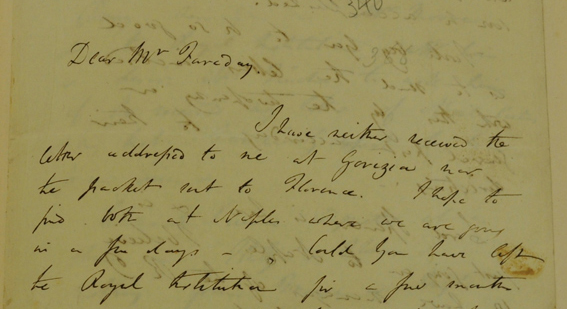 340
Dear Mr Faraday
I have neither received the
letter addressed to me at Gorizia nor
the packet sent to Florence. I hope to
find both at Naples where we are going
in a few days - Could you have left
the Royal Institution for a few months